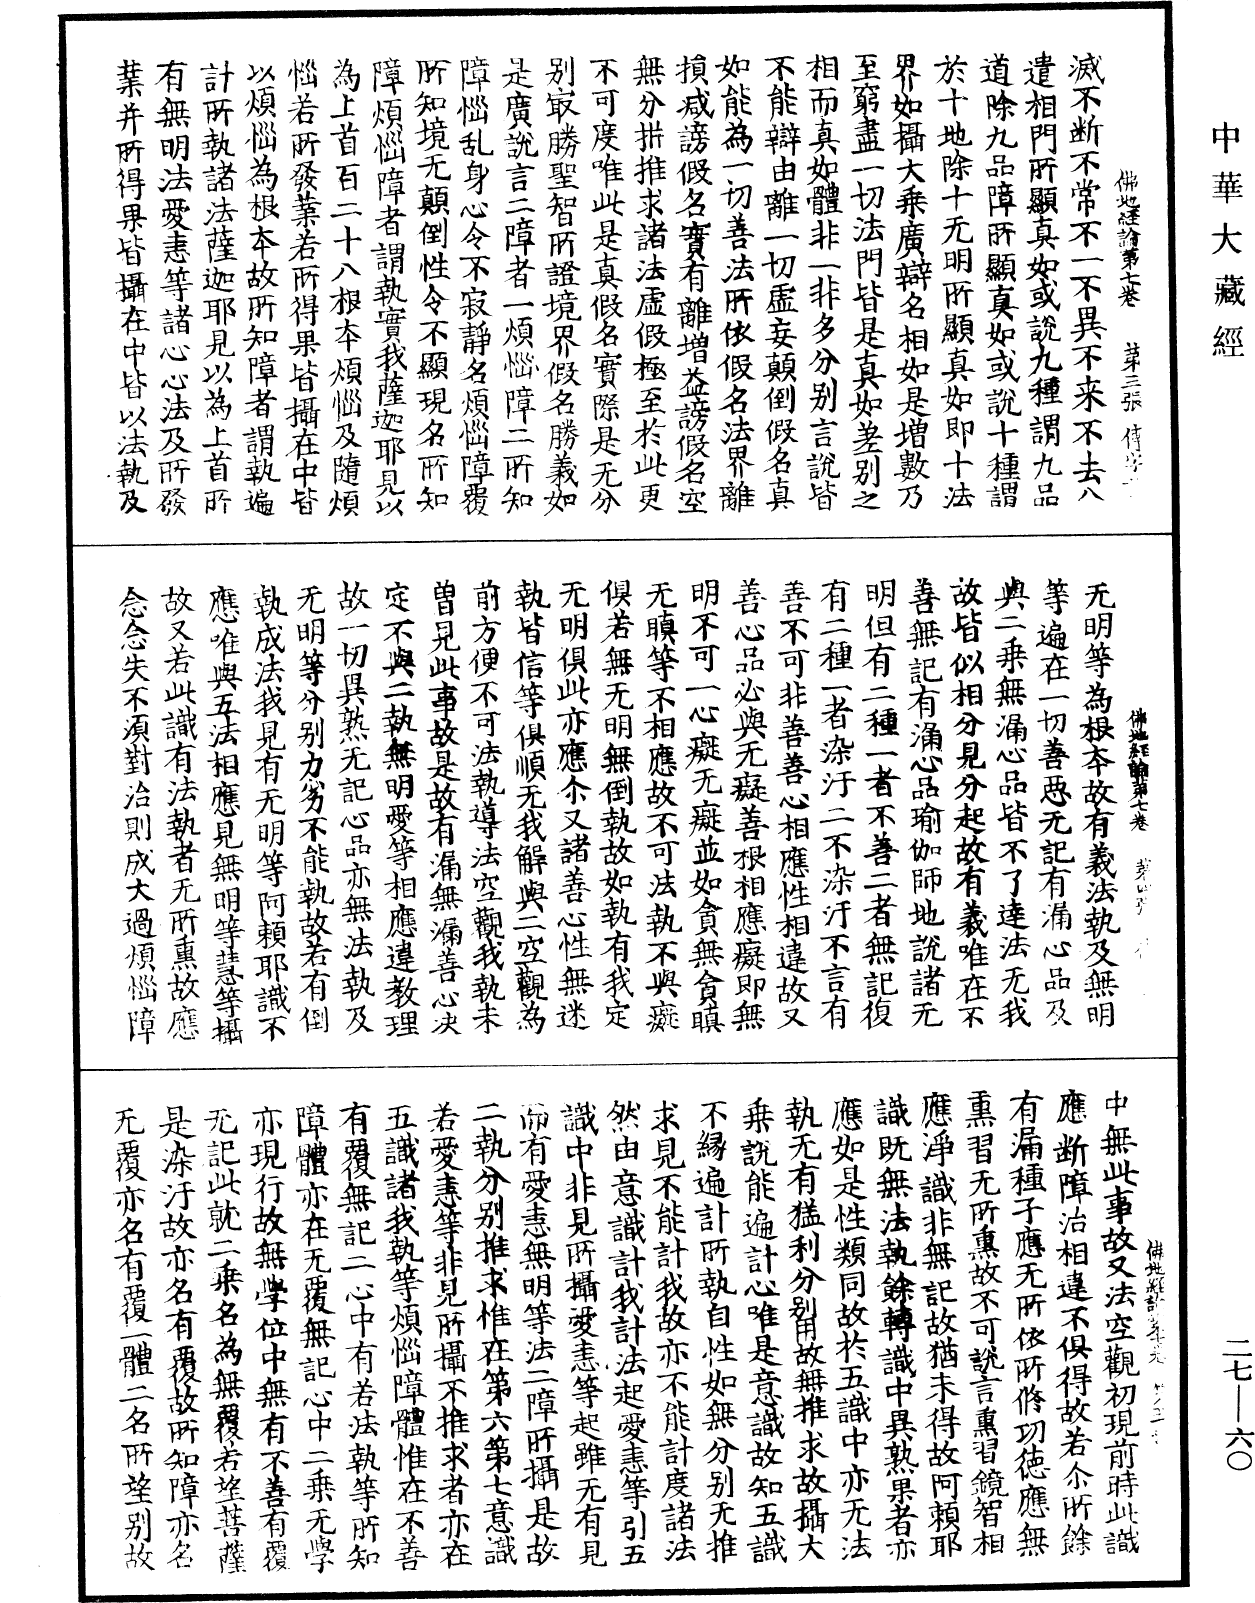 中華大藏經
佛地經論第七卷 第三張 傳字
滅不斷不常不一不異不来不去八
遣相門所顯真如或說九種謂九品
道除九品障所顯真如或說十種謂
於十地除十无明所顯真如即十法
界如攝大乘廣辯名相如是增數乃
至窮盡一切法門皆是真如差別之
相而真如體非一非多分別言說皆
不能辯由離一切虛妄顛倒假名真
如能為一切善法所依假名法界離
損減謗假名實有離增益謗假名空
無分拼推求諸法虛假極至於此更
不可度唯此是真假名實際是无分
別最勝聖智所證境界假名勝義如
是廣說言二障者一煩惱障二所知
障惱乱身心令不寂靜名煩惱障覆
所知境无顛倒性令不顯現名所知
障煩惱障者謂執實我薩迦耶見以
為上首百二十八根本煩惱及隨煩
惱若所發業若所得果皆攝在中皆
以煩惱為根本故所知障者謂執遍
計所執諸法薩迦耶見以為上首所
有無明法愛恚等諸心心法及所發
業并所得果皆攝在中皆以法執及
佛地經論第七卷 第四張
无明等為根本故有義法執及無明
等遍在一切善惡无記有漏心品及
與二乘無漏心品皆不了達法无我
故皆似相分見分起故有義唯在不
善無記有漏心品瑜伽師地說諸无
明但有二種一者不善二者無記復
有二種一者染汙二不染汙不言有
善不可非善善心相應性相違故又
善心品必與无癡善根相應癡即無
明不可一心癡无癡並如貪無貪瞋
无瞋等不相應故不可法執不與癡
俱若無无明無倒執故如執有我定
无明俱此亦應尒又諸善心性無迷
執皆信等俱順无我解與二空觀為
前方便不可法執導法空觀我執未
曾見此事故是故有漏無漏善心决
定不與二執無明愛等相應違教理
故一切異熟无記心品亦無法執及
无明等分別力劣不能執故若有倒
執成法我見有无明等阿賴耶識不
應唯與五法相應見無明等慧等攝
故又若此識有法執者无所熏故應
念念失不須對治則成大過煩惱障
中無此事故又法空觀初現前時此識
應斷障治相違不俱得故若尒所餘
有漏種子應无所依所修功德應無
熏習无所熏故不可說言熏習鏡智相
應淨識非無記故猶未得故阿賴耶
識既無法執餘轉識中異熟果者亦
應如是性類同故於五識中亦无法
執无有猛利分別用故無推求故攝大
乘說能遍計心唯是意識故知五識
不緣遍計所執自性如無分別无推
求見不能計我故亦不能計度諸法
然由意識計我計法起愛恚等引五
識中非見所攝愛恚等起雖无有見
而有愛恚無明等法二障所攝是故
二執分別推求惟在第六第七意識
若愛恚等非見所攝不推求者亦在
五識諸我執等煩惱障體惟在不善
有覆無記二心中有若法執等所知
障體亦在无覆無記心中二乘无學
亦現行故無學位中無有不善有覆
无記此就二乘名為無覆若望菩薩
是染汙故亦名有覆故所知障亦名
无覆亦名有覆一體二名所望別故
二七—六〇